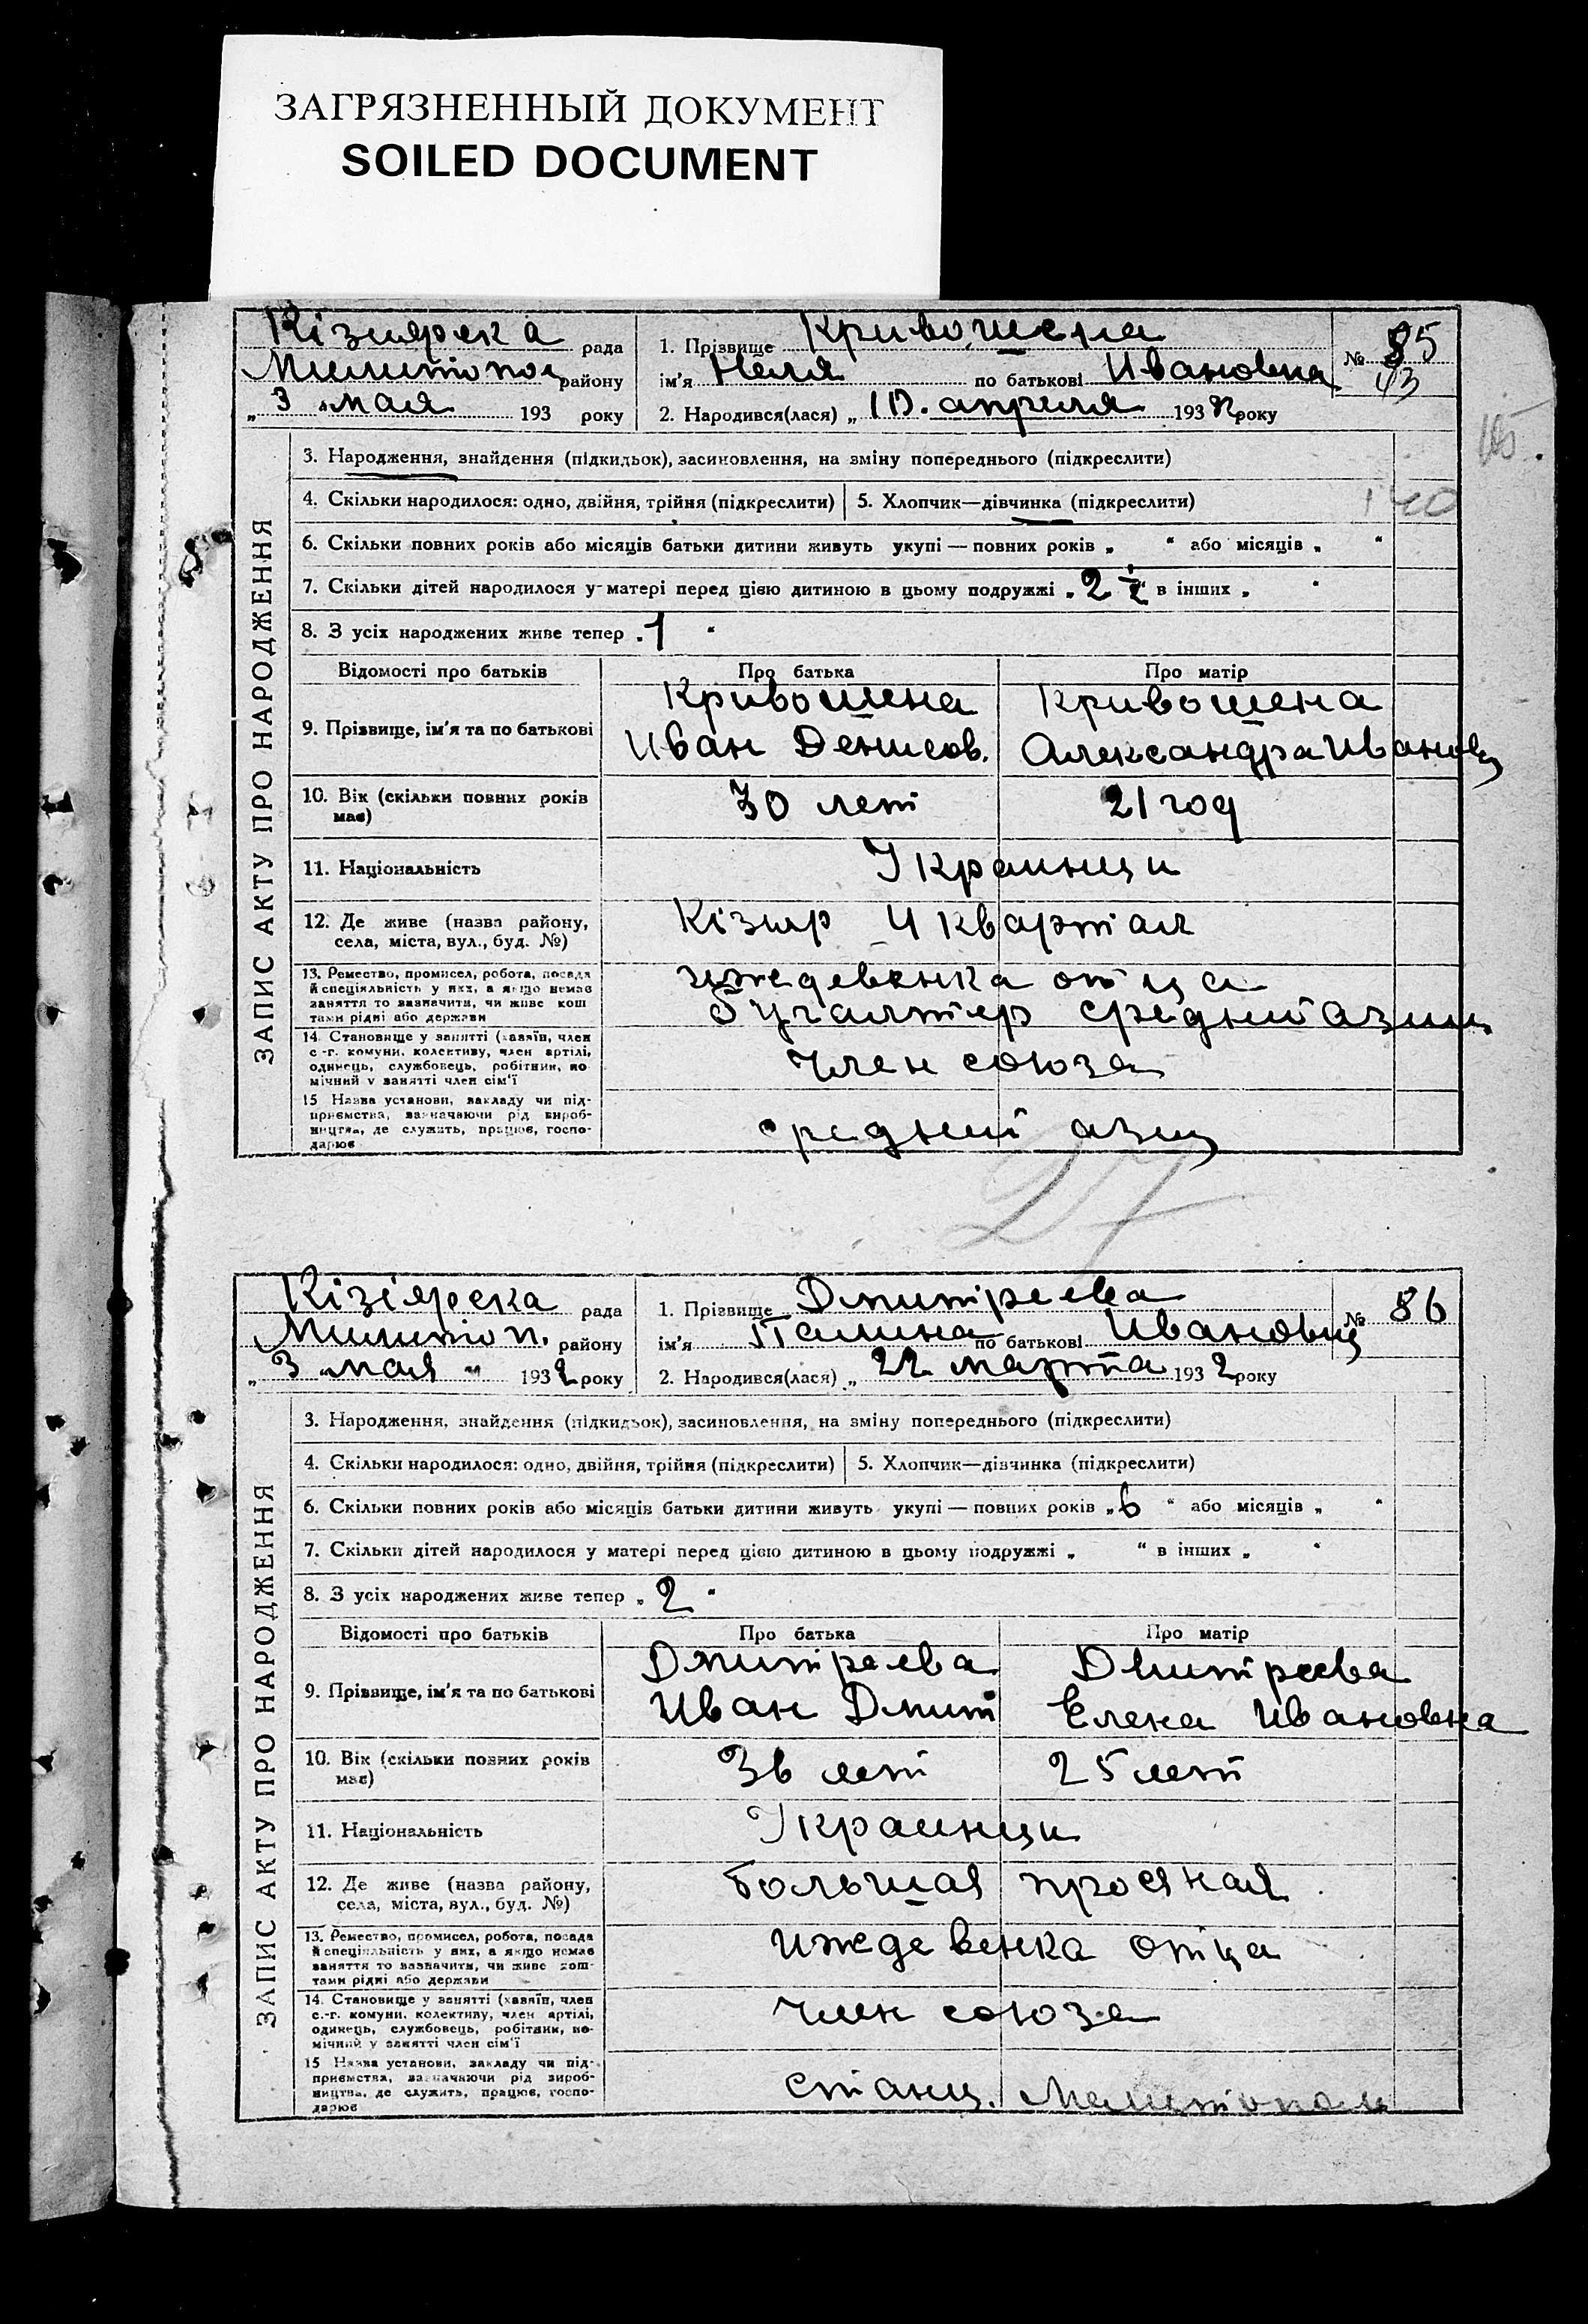 ЗАГРЯЗНЕННЫЙ ДОКУМЕНТ
SOILED DOCUMENT
ЗАПИС АКТУ ПРО НАРОДЖЕННЯ
Кізиярска рада
Мелитопол району
„3" мая 193 року
1. Прізвище Кривошена
ім'я Неля по батькові Ивановна
2. Народився(лася) „10. апреля 1932 року
№ 85
43
3. Народження, знайдення (підкидьок), засиновлення, на зміну попереднього (підкреслити)
4. Скільки народилося: одно, двійня, трійня (підкреслити) 5. Хлопчик—дівчинка (підкреслити)
140
6. Скільки повних років або місяців батьки дитини живуть укупі — повних років „ " або місяців „ "
7. Скільки дітей народилося у матері перед цією дитиною в цьому подружжі „2 " в інших „ "
8. З усіх народжених живе тепер „1 "
Відомості про батьків Про батька Про матір
9. Прізвище, ім'я та по батькові
Кривошена Кривошена
Иван Денисов. Александра Ивановн
10. Вік (скільки повних років має) 30 лет 21 год
11. Національність Украинци
12. Де живе (назва району, Кізияр 4 квартал
села, міста, вул., буд. №)
13. Ремество, промисел, робота, посада
й спеціяльність у них, а якщо немає
заняття то зазначити, чи живе кош
тами рідні або держави
иждевенка отца
бугалтер средний азии
14. Становище у занятті (хазяїн, член
с.-г. комуни, колективу, член артілі,
одинець, службовець, робітник, по-
мічний у занятті член сім'ї
член союза
15 Назва установи, закладу чи під-
приємства, зазначаючи рід вироб-
ництва, де служить, працює, госпо-
дарює
средний азии
27
ЗАПИС АКТУ ПРО НАРОДЖЕННЯ
Кізіярска рада
Мелитоп. району
„3 „мая " 1932 року
1. Прізвище Дмитреева
ім'я Палина по батькові Ивановн
2. Народився(лася) „ 22 марта 1932 року
№ 86
3. Народження, знайдення (підкидьок), засиновлення, на зміну попереднього (підкреслити)
4. Скільки народилося: одно, двійня, трійня (підкреслити) 5. Хлопчик—дівчинка (підкреслити)
6. Скільки повних років або місяців батьки дитини живуть укупі — повних років „6 " або місяців „ "
7. Скільки дітей народилося у матері перед цією дитиною в цьому подружжі „ " в інших „ "
8. З усіх народжених живе тепер „2 "
Відомості про батьків Про батька Про матір
9. Прізвище, ім'я та по батькові
Дмитреева Дмитреева
Иван Дмит Елена Ивановна
10. Вік (скільки повних років має) 36 лет 25 лет
11. Національність Украинци
12. Де живе (назва району, большая проезная
села, міста, вул., буд. №)
13. Ремество, промисел, робота, посада
й спеціяльність у них, а якщо немає
заняття то зазначити, чи живе кош-
тами рідні або держави
иждевенка отца
14. Становище у занятті (хазяїн, член
с.-г. комуни, колективу, член артілі,
одинець, службовець, робітник, по-
мічний у занятті член сім'ї
член союза
15 Назва установи, закладу чи під-
приємства, зазначаючи рід вироб-
ництва, де служить, працює, госпо-
дарює
станц. Мелитополь